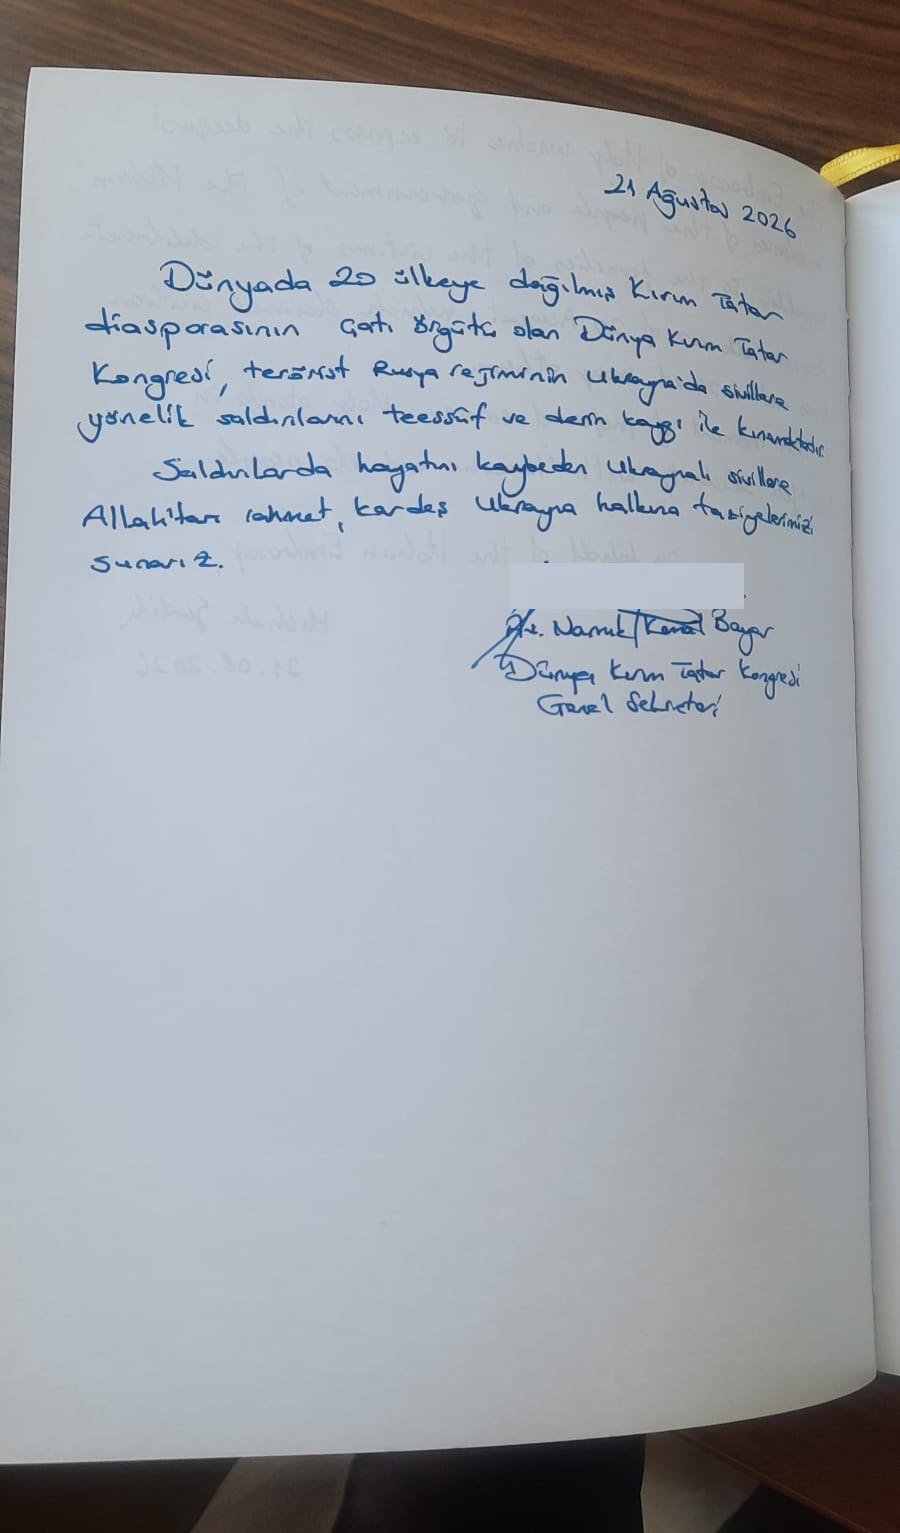 21 Ağustos 2026
Dünyada 20 ülkeye dağılmış Kırım Tatar
diasporasının çatı örgütü olan Dünya Kırım Tatar
Kongresi, terörist Rusya rejiminin Ukrayna'da sivillere
yönelik saldırılarını teessüf ve derin kaygı ile kınamaktadır.
Saldırılarda hayatını kaybeden Ukraynalı sivillere
Allah'tan rahmet, kardeş Ukrayna halkına taziyelerimizi
sunarız.
Av. Namık Kemal Bayar
Dünya Kırım Tatar Kongresi
Genel Sekreteri